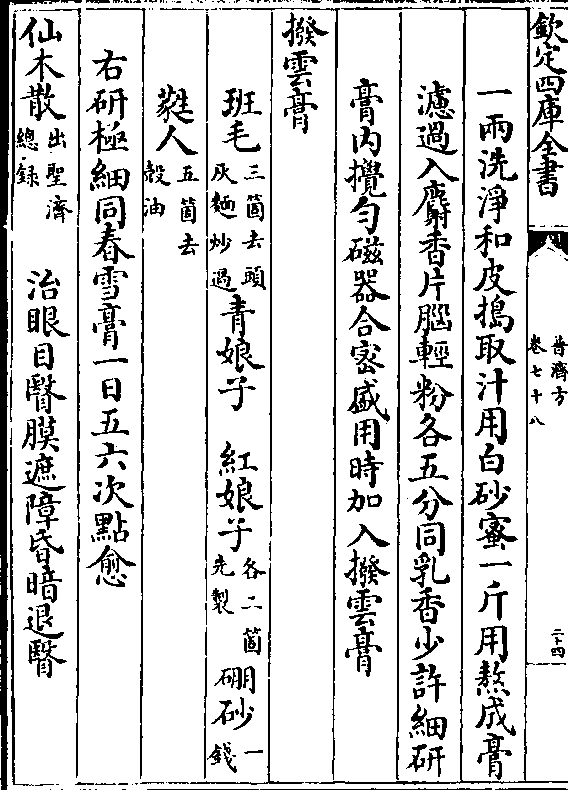 欽定四庫全書
普濟方
卷七十八
二十四
一兩洗淨和皮搗取汁用白砂蜜一斤用熬成膏
濾過入麝香片腦輕粉各五分同乳香少許細研
膏内攪勻磁器合密盛用時加入撥雲膏
撥雲膏
班毛三箇去頭灰麵炒過 青娘子 紅娘子各二箇先製 硼砂一錢
蕤人五箇去殼油
右研極細同春雪膏一日五六次點愈
仙木散出聖濟總録 治眼目瞖膜遮障昏暗退瞖